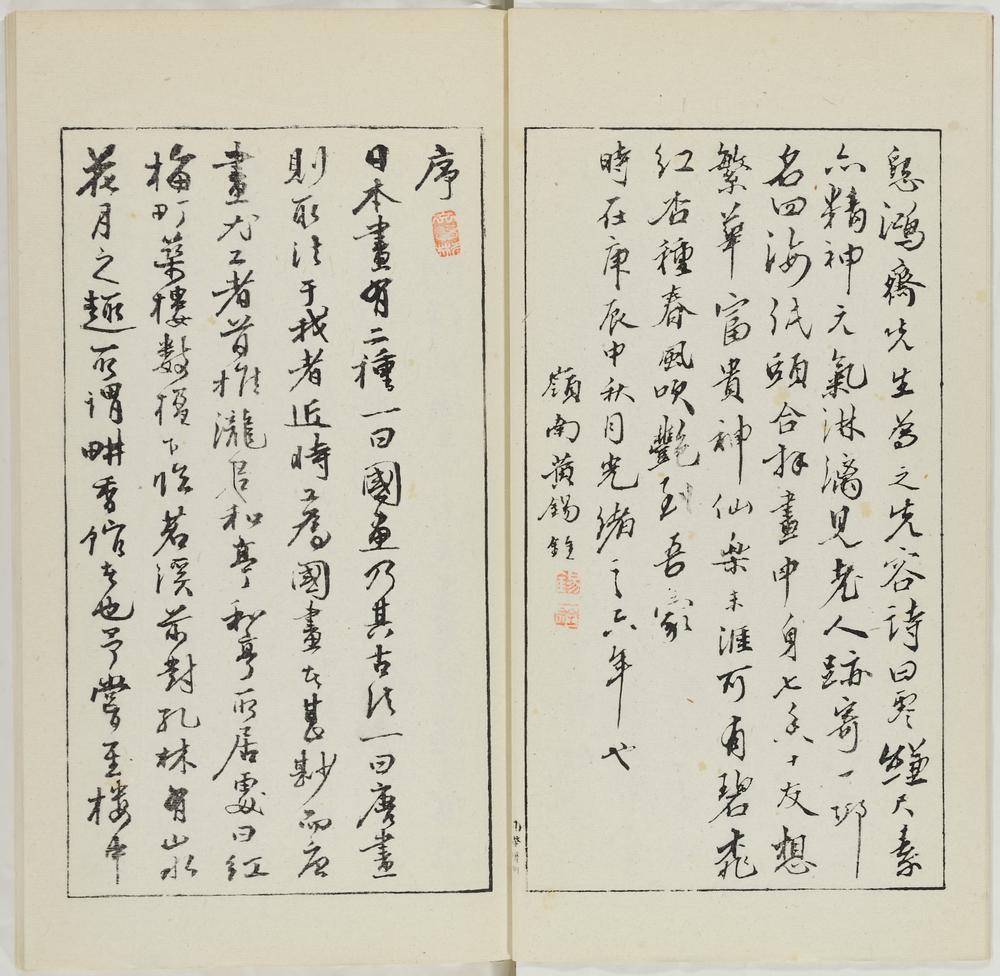 鴻齋先生為之先容詩曰零縑尺素
亦精神元氣淋漓見老人跡寄一邨
名四海低頭合拜畫中身七香十友想
繁華富貴神仙樂未涯所有碧桃
紅杏種春風吹艷到吾家
時在庚辰中秋月光緒之六年也
嶺南黃錫銓
序
日本畫有二種一曰國畫乃其古法一曰唐畫
則取法于我者近時工為國畫者甚尠而唐
畫尤工者首推瀧君和亭和亭所居處曰紅
梅町築樓數楹下臨茗溪前對孔林有山水
花月之趣所謂畊香館者也予嘗至樓中